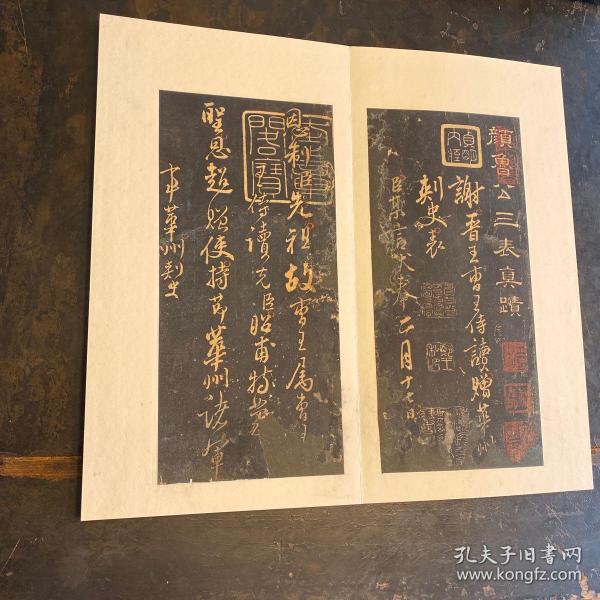 顏魯公三表真蹟
謝晋王曹王侍讀贈華州
刺史表
臣某言伏奉二月十七日
恩制臣先祖故曹王屬曹王
侍讀先臣昭甫特當
聖恩超贈使持節華州諸軍
事華州刺史
孔夫子旧书网
www.kongfz.com